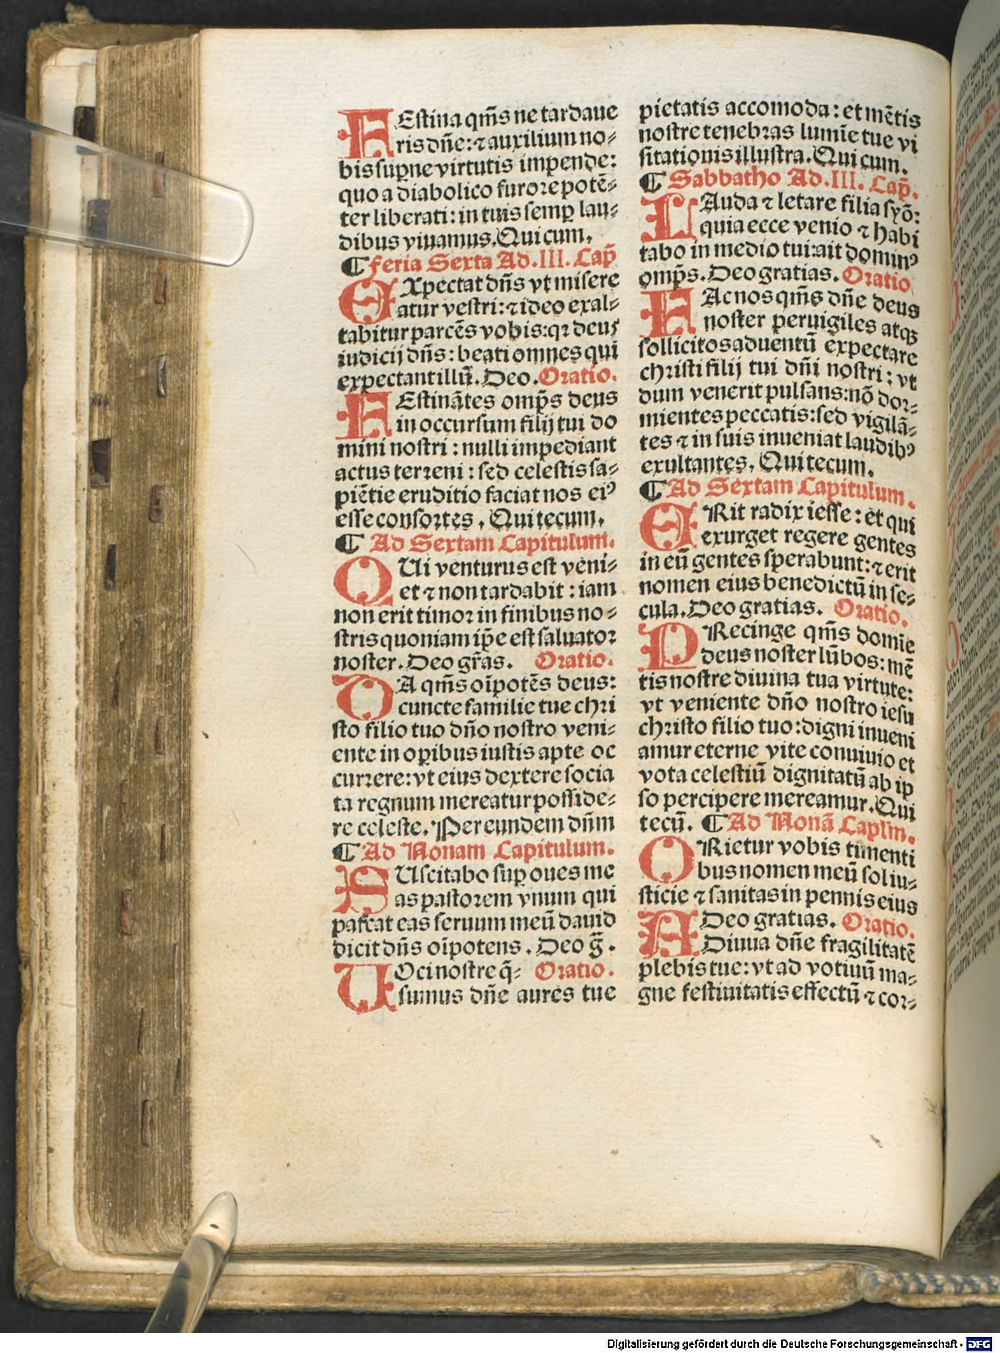 FEstina q̄m̄s ne tardaue
ris dn̄e: ⁊ auxilium no⸗
bis sup̱ne virtutis impende:
quo a diabolico furore potē⸗
ter liberati: in tuis semp̱ lau⸗
dibus viuamus. Qui cum.
¶ feria Sexta Ad .III. Cap̄
EXpectat dn̄s vt misere
atur vestri: ⁊ ideo exal⸗
tabitur parcēs vobis: qꝛ deus
iudicij dn̄s: beati omnes qui
expectant illū. Deo. Oratio.
FEstinātes omp̄s deus
in occursum filij tui do
mini nostri: nulli impediant
actus terreni: sed celestis sa⸗
piētie eruditio faciat nos eiꝰ
esse consortes. Qui tecum.
¶ Ad Sextam Capitulum.
QUi venturus est veni⸗
et ⁊ non tardabit: iam
non erit timor in finibus no⸗
stris quoniam ip̄e est saluator
noster. Deo gr̄as. Oratio.
DA q̄m̄s oīpotēs deus:
cuncte familie tue chri
sto filio tuo dn̄o nostro veni⸗
ente in op̱ibus iustis apte oc
currere: vt eius dextere socia
ta regnum mereatur posside⸗
re celeste. Per eundem dn̄m
¶ Ad Nonam Capitulum.
SUscitabo sup̱ oues me
as pastorem vnum qui
pascat eas seruum meū dauid
dicit dn̄s oīpotens. Deo ḡ.
VOci nostre q̄⸗ Oratio.
sumus dn̄e aures tue
pietatis accomoda: et mētis
nostre tenebras lumīe tue vi
sitationis illustra. Qui cum.
¶ Sabbatho Ad .III. Cap̄.
LAuda ⁊ letare filia syō:
quia ecce venio ⁊ habi
tabo in medio tui: ait dominꝰ
omp̄s. Deo gratias. Oratio
FAc nos q̄m̄s dn̄e deus
noster peruigiles atqꝫ
sollicitos aduentū expectare
christi filij tui dn̄i nostri: vt
dum venerit pulsans: nō dor⸗
mientes peccatis: sed vigilā⸗
tes ⁊ in suis inueniat laudibꝰ
exultantes. Qui tecum.
¶ Ad Sextam Capitulum.
ERit radix iesse: et qui
exurget regere gentes
in eū gentes sperabunt: ⁊ erit
nomen eius benedictū in se⸗
cula. Deo gratias. Oratio.
PRecinge q̄m̄s domīe
deus noster lūbos: mē
tis nostre diuina tua virtute:
vt veniente dn̄o nostro iesu
christo filio tuo: digni inueni
amur eterne vite conuiuio et
vota celestiū dignitatū ab ip
so percipere mereamur. Qui
tecū. ¶ Ad Nonā Caplm̄.
ORietur vobis timenti
bus nomen meū sol iu⸗
sticie ⁊ sanitas in pennis eius
Deo gratias. Oratio.
ADiuua dn̄e fragilitatē
plebis tue: vt ad votiuū ma⸗
gne festiuitatis effectū ⁊ cor⸗
Digitalisierung gefördert durch die Deutsche Forschungsgemeinschaft - DFG